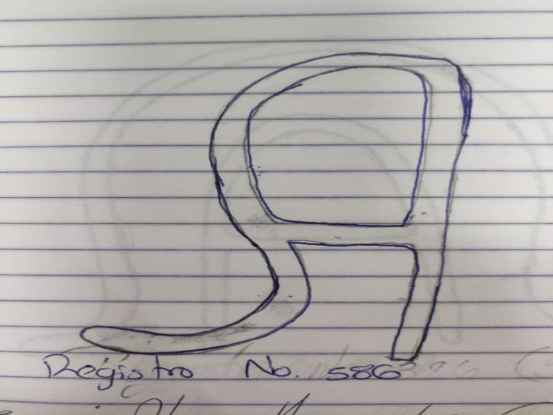 Я
Registro No. 586